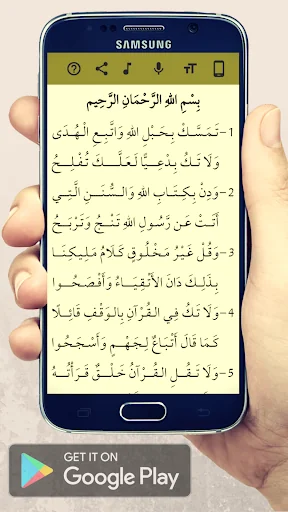 SAMSUNG
بِسْمِ اللهِ الرَّحْمَانِ الرَّحِيمِ
1- تَمَسَّكْ بِحَبْلِ اللهِ وَاتَّبِعِ الْهُدَى
وَلَا تَكُ بِدْعِيًّا لَعَلَّكَ تُفْلِحُ
2- وَدِنْ بِكِتَابِ اللهِ وَالسُّنَنِ الَّتِي
أَتَتْ عَن رَّسُولِ اللهِ تَنْجُ وَتَرْبَحُ
3- وَقُلْ غَيْرُ مَخْلُوقٍ كَلَامُ مَلِيكِنَا
بِذَلِكَ دَانَ الْأَتْقِيَاءُ وَأَفْصَحُوا
4- وَلَا تَكُ فِي الْقُرْآنِ بِالْوَقْفِ قَائِلًا
كَمَا قَالَ أَتْبَاعٌ لِجَهْمٍ وَأَسْجَحُوا
5- وَلَا تَقُلِ الْقُرْآنُ خَلْقٌ قَرَأْتُهُ
GET IT ON
Google Play